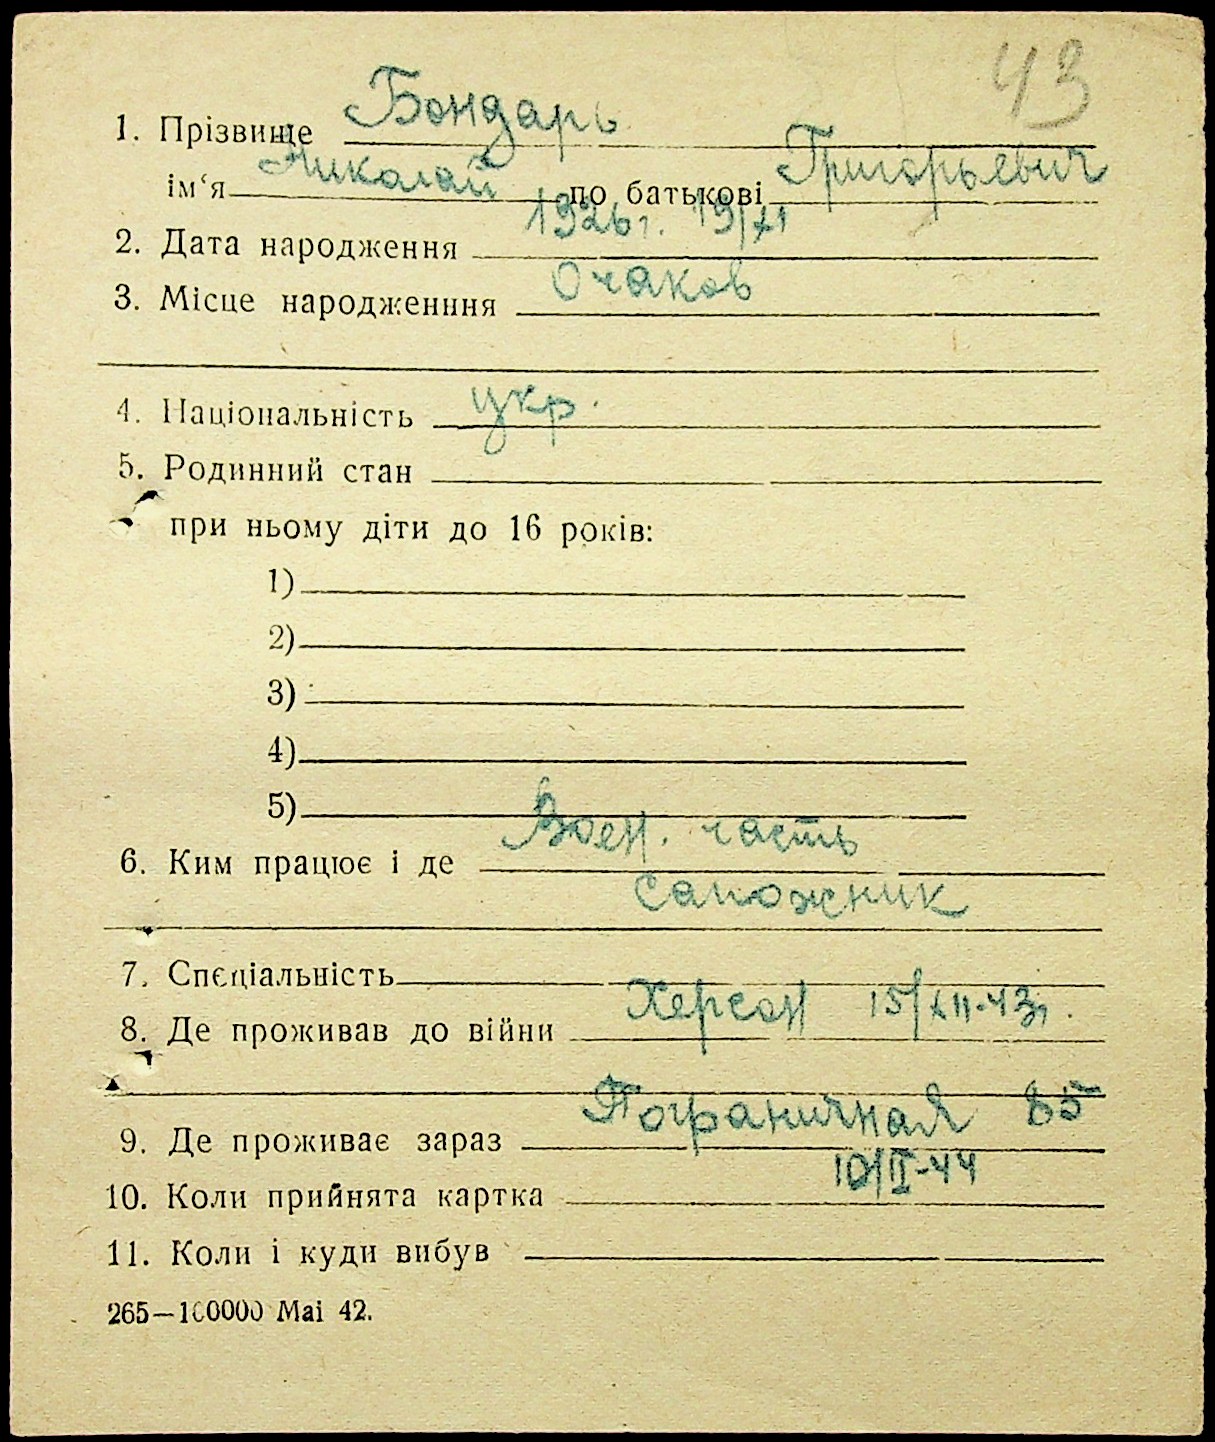 43
1. Прізвище Бондарь
ім‘я Николай по батькові Григорьевич
2. Дата народження 1926г. 19/XI
3. Місце народженння Очаков
4. Національність укр.
5. Родинний стан
при ньому діти до 16 років:
1)
2)
3)
4)
5)
6. Ким працює і де Воен. часть
сапожник
7. Спєціальність
8. Де проживав до війни Херсон 15/XII-43г.
9. Де проживає зараз Пограничная 85
10. Коли прийнята картка 10/II-44
11. Коли і куди вибув
265—100000 Mai 42.